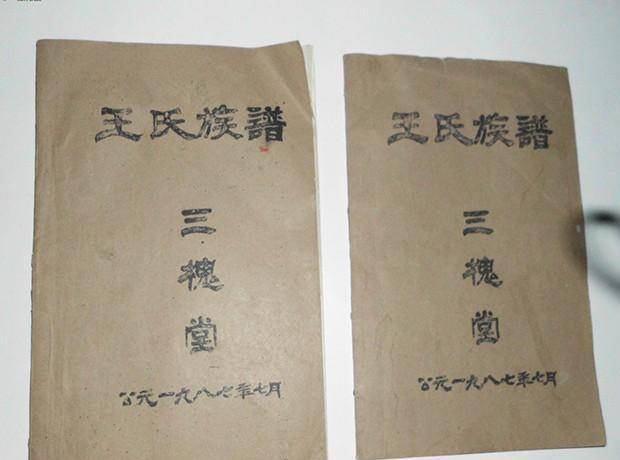 王氏族譜
三槐堂
公元一九八七年七月
王氏族譜
三槐堂
公元一九八七年七月